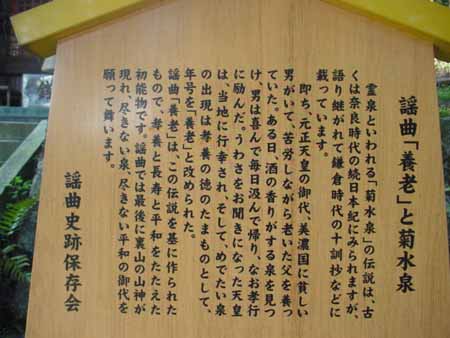 謡曲「養老」と菊水泉
霊泉といわれる「菊水泉」の伝説は、古
くは奈良時代の続日本紀にみられますが、
語り継がれて鎌倉時代の十訓抄などに
載っています。
即ち、元正天皇の御代、美濃国に貧しい
男がいて、苦労しながら老いた父を養っ
ていた。ある日、酒の香りがする泉を見つ
け、男は喜んで毎日汲んで帰り、なお孝行
に励んだ。うわさをお聞きになった天皇
は、当地に行幸され、そして、めでたい泉
の出現は孝養の徳のたまものとして、
年号を「養老」と改められた。
謡曲「養老」は、この伝説を基に作られた
もので、孝養と長寿と平和をたたえた
初能物です。謡曲では最後に裏山の山神が
現れ、尽きない泉、尽きない平和の御代を
願って舞います。
謡曲史跡保存会